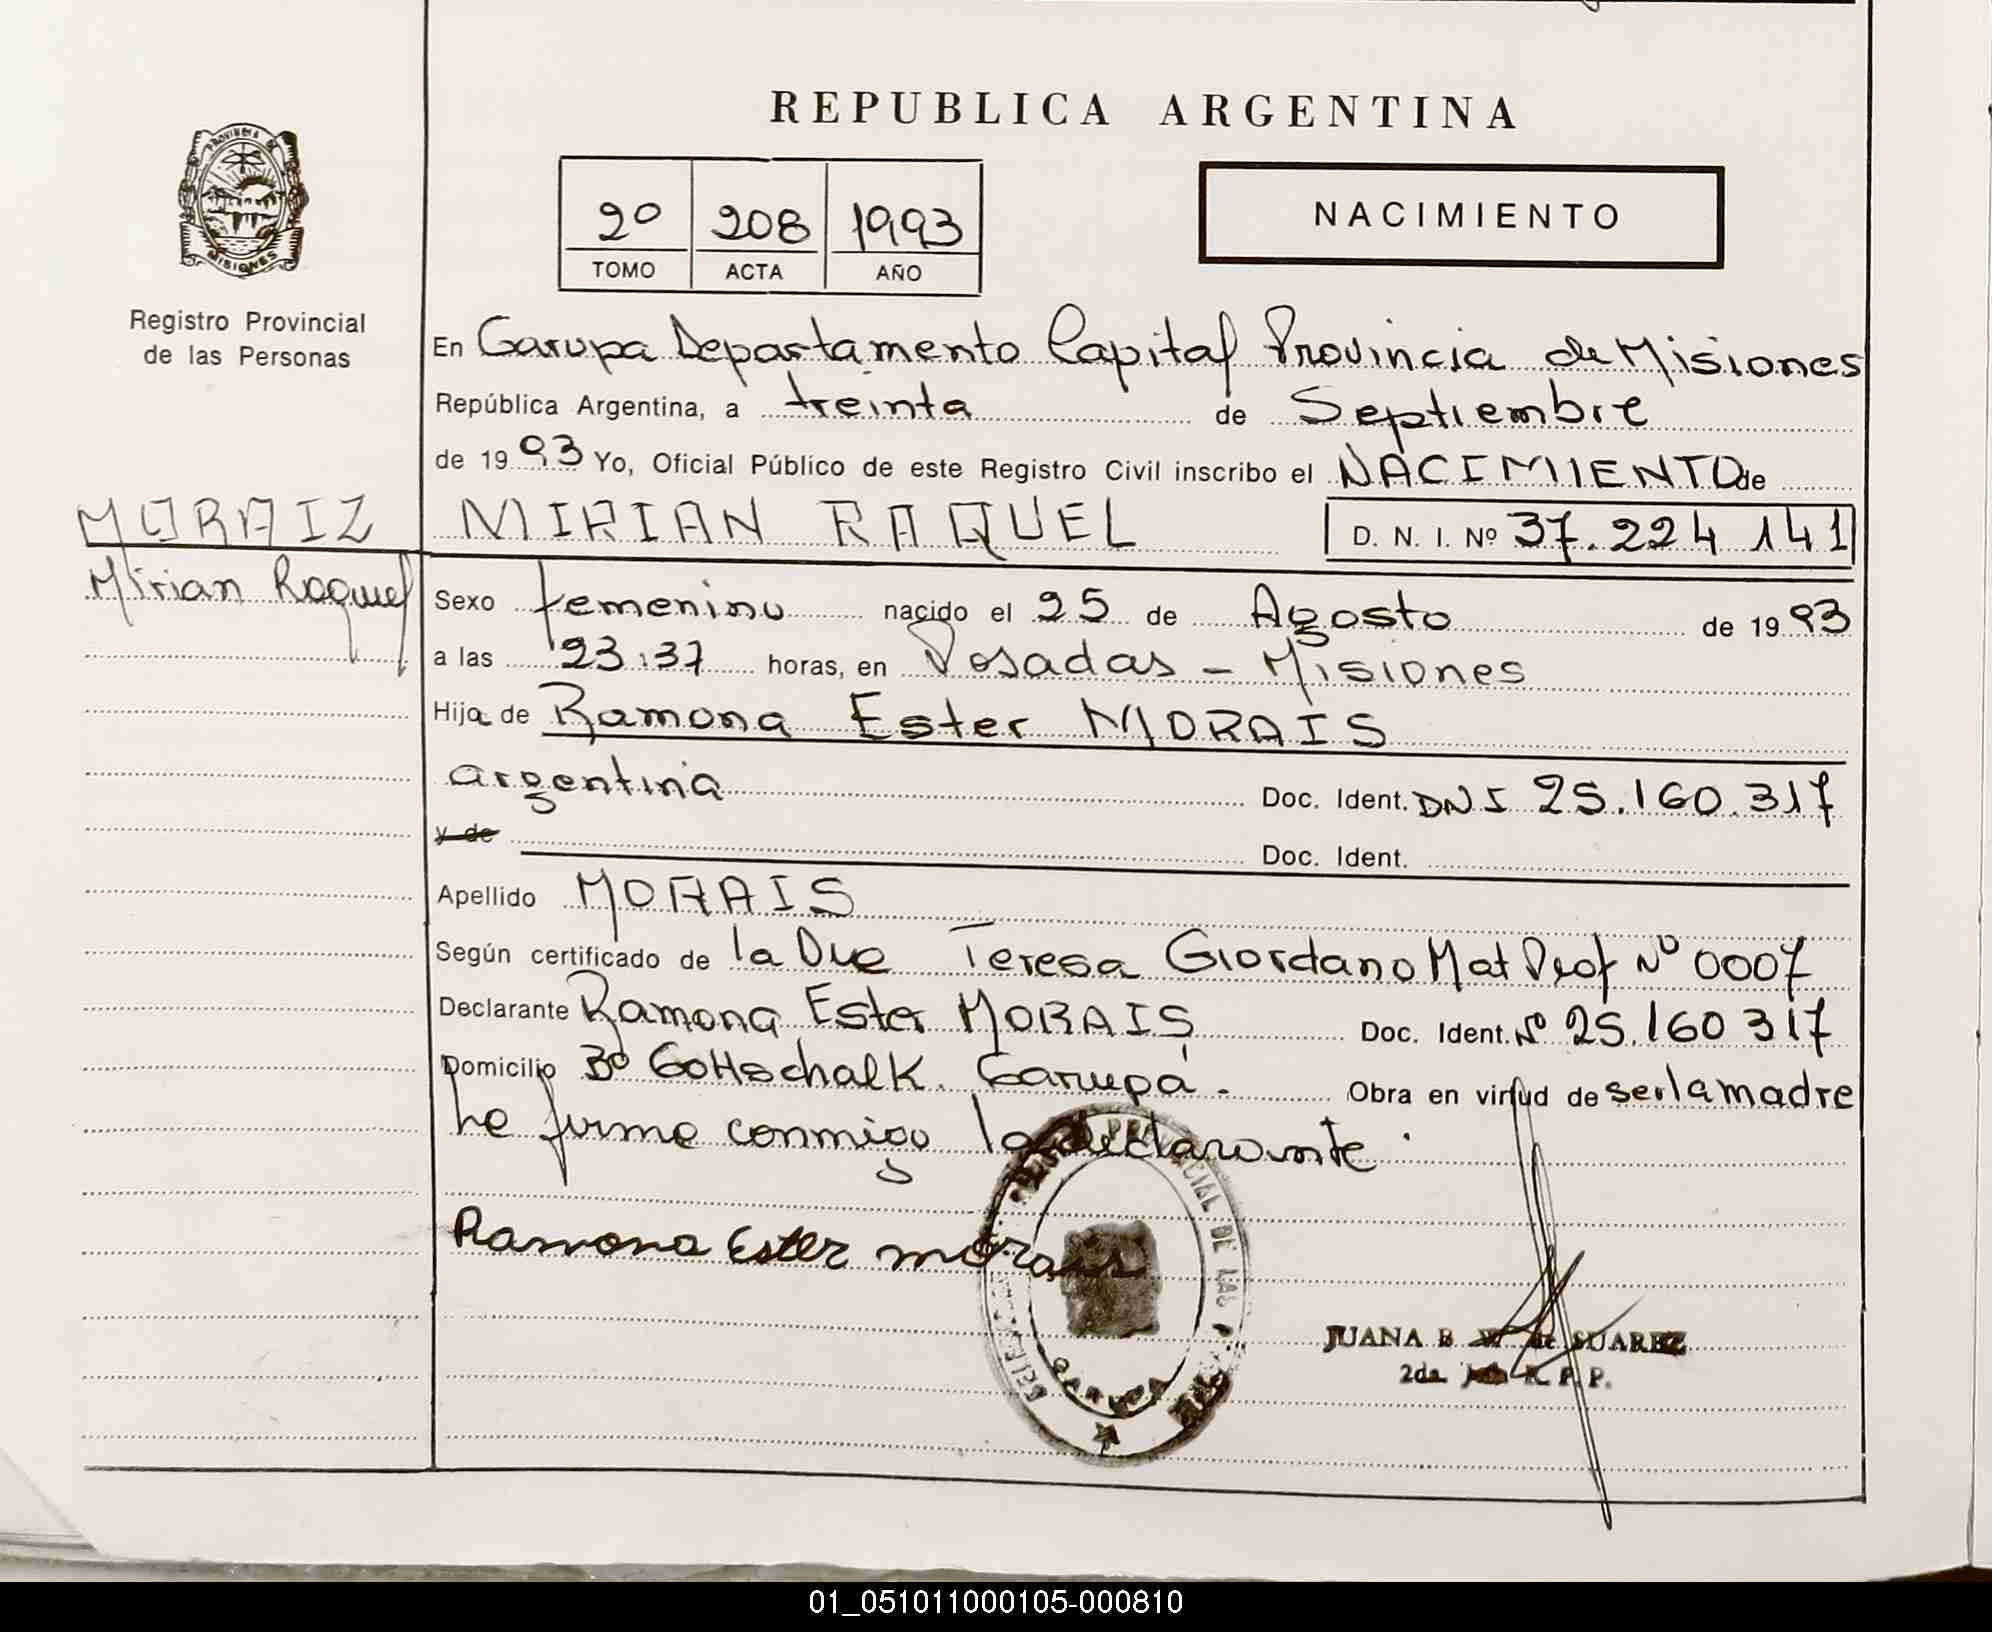 REPUBLICA ARGENTINA
PROVINCIA DE
MISIONES
Registro Provincial
de las Personas
2º 208 1993
TOMO ACTA AÑO
NACIMIENTO
En Garupa Departamento Capital Provincia de Misiones
República Argentina, a treinta de Septiembre
de 1993 Yo, Oficial Público de este Registro Civil inscribo el NACIMIENTO de
MORAIZ
MIRIAN RAQUEL D. N. I. Nº 37.224 141
Mirian Raquel
Sexo femenino nacido el 25 de Agosto de 1993
a las 23:37 horas, en Posadas - Misiones
Hija de Ramona Ester MORAIS
argentina Doc. Ident. DNI 25.160.317
y de Doc. Ident.
Apellido MORAIS
Según certificado de la Dve Teresa Giordano Mat Prof Nº 0007
Declarante Ramona Ester MORAIS Doc. Ident. Nº 25.160 317
Domicilio Bº Gottschalk. Garupá. Obra en virtud de ser la madre
he firma conmigo la declarante.
Ramona Ester morais
PROVINCIAL DE LAS
GARUPA
JUANA B. de SUAREZ
2da R. P. P.
01_051011000105-000810